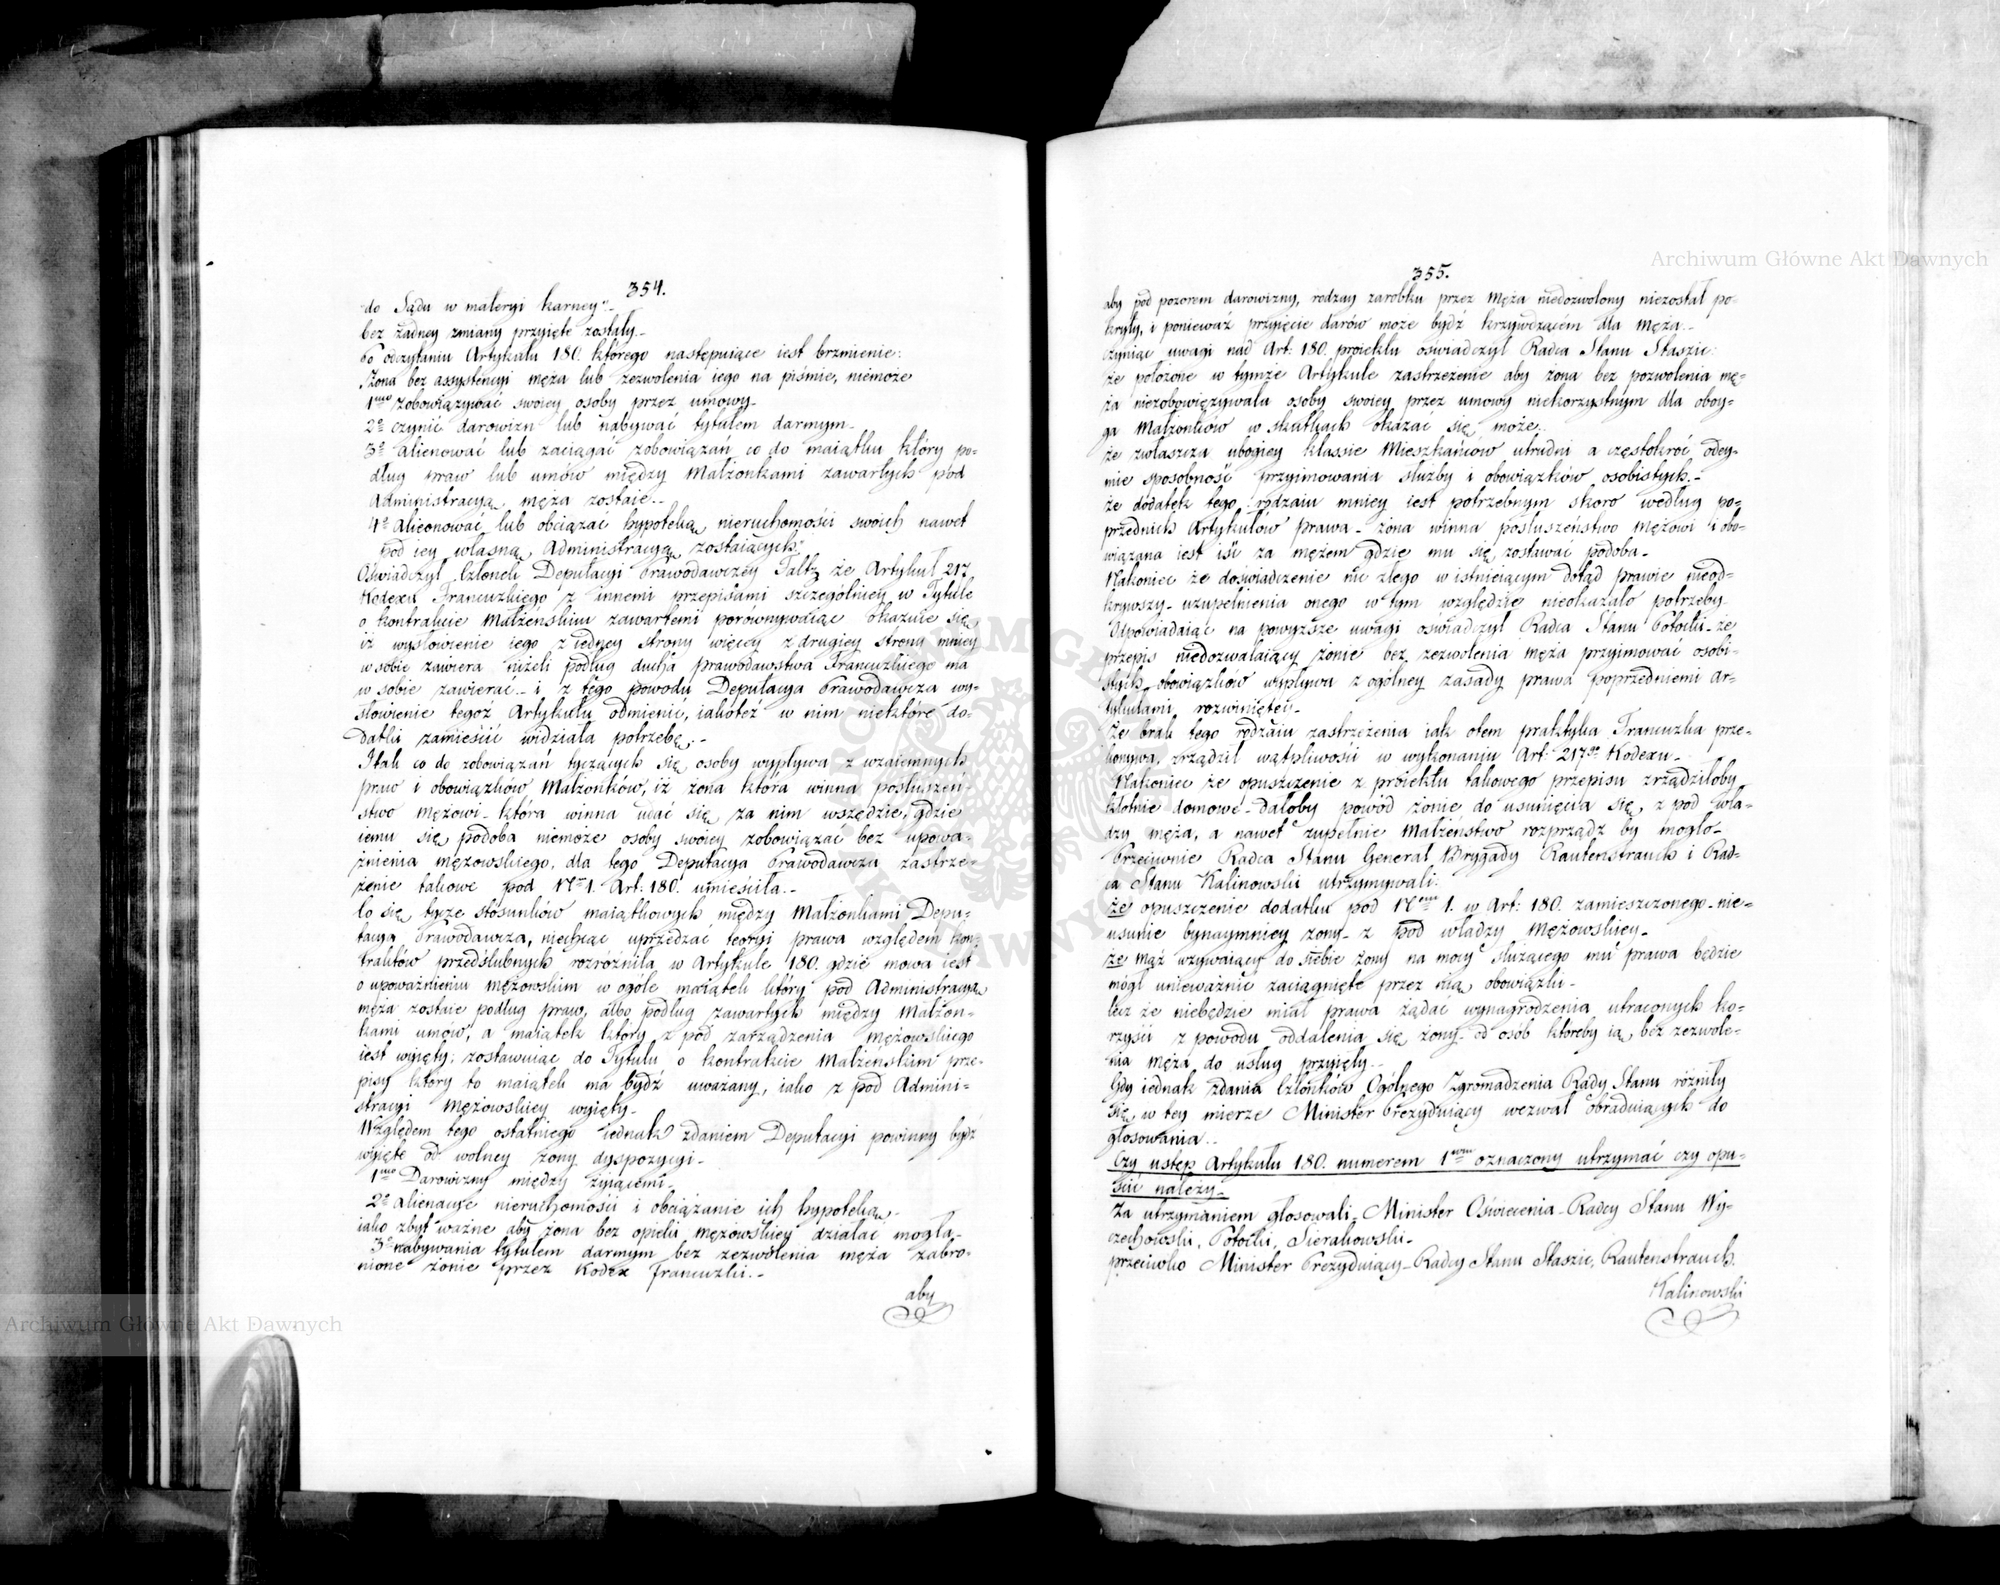 354.
do Sądu w materyi karney".-
bez żadney zmiany przyięte zostały.-
Po odczytaniu Artykułu 180. którego następuiące iest brzmienie:
Żona bez assystencyi męża lub zezwolenia iego na piśmie, niemoże
1mo zobowiązywać swoiey osoby przez umowy.-
2o czynić darowizn lub nabywać tytułem darmym.-
3o alienować lub zaciągać zobowiązań co do maiątku który po=
dług praw lub umów między Małżonkami zawartych pod
Administracyą męża zostaie.-
4o Alieonować lub obciążać hypoteką nieruchomości swoich nawet
pod iey własną Administracyą zostaiących."
Oświadczył Członek Deputacyi Prawodawczey Faltz że Artykuł 217
Kodexu Francuzkiego z innemi przepisami szczególniey w Tytule
o kontrakcie Małżeńskim zawartemi porównywaiąc okazuie się
iż wysłowienie iego z iedney strony więcey z drugiey strony mniey
w sobie zawiera niżeli podług ducha prawodawstwa Francuzkiego ma
w sobie zawierać - i z tego powodu Deputacya Prawodawcza wy=
słowienie tegoż Artykułu odmienić, iakoteż w nim niektóre do=
datki zamieścić widziała potrzebę.-
I tak co do zobowiązań tyczących się osoby wypływa z wzaiemnych
praw i obowiązków Małżonków, iż żona która winna posłuszeń=
stwo mężowi - która winna udać się za nim wszędzie, gdzie
iemu się podoba niemoże osoby swoiey zobowiązać bez upowa=
żnienia mężowskiego, dla tego Deputacya Prawodawcza zastrze=
żenie takowe pod No 1. Art: 180. umieściła.-
Co się tycze stosunków maiątkowych między Małżonkami Depu=
tacya Prawodawcza, niechcąc uprzedzać teoryi prawa względem kon=
traktów przedślubnych rozróżniła w Artykule 180. gdzie mowa iest
o upoważnieniu mężowskim w ogóle maiątek który pod Administracyą
męża zostaie podług praw, albo podług zawartych między Małżon=
kami umów, a maiątek który z pod zarządzenia mężowskiego
iest wyięty; zostawuiąc do Tytułu o kontrakcie Małżeńskim prze=
pisy który to maiątek ma bydź uważany, iako z pod Admini=
stracyi Mężowskiey wyięty.-
Względem tego ostatniego iednak zdaniem Deputacyi powinny bydź
wyięte od wolney żony dyspozycyi.-
1mo Darowizny między żyiącemi.-
2o alienacye nieruchomości i obciążanie ich hypoteką.-
iako zbyt ważne aby żona bez opieki mężowskiey działać mogła.-
3o nabywania tytułem darmym bez zezwolenia męża zabro=
nione żonie przez Kodex Francuzki.-
aby
355.
aby pod pozorem darowizny, rodzay zarobku przez Męża niedozwolony niezostał po=
kryty, i ponieważ przyięcie darów może bydź krzywdzącém dla Męża.-
Czyniąc uwagi nad Art: 180. proiektu oświadczył Radca Stanu Staszic:
że położone w tymże Artykule zastrzeżenie aby żona bez pozwolenia mę=
ża niezobowięzywała osoby swoiey przez umowy niekorzystnym dla oboy=
ga Małżonków w skutkach okazać się może.
że zwłaszcza ubogiey klassie Mieszkańców utrudni a częstokroć odey=
mie sposobność przyimowania służby i obowiązków osobistych.-
że dodatek tego rodzaiu mniey iest potrzebnym skoro według po=
przednich Artykułów prawa - żona winna posłuszeństwo Mężowi i obo=
wiązana iest iśi za mężem gdzie mu się zostawać podoba.-
Nakoniec że doświadczenie nic złego w istnieiącym dotąd prawie nieod=
krywszy - uzupełnienia onego w tym względzie nieokazało potrzeby.
Odpowiadaiąc na powyższe uwagi oświadczył Radca Stanu Potocki - że
przepis niedozwalaiący żonie bez zezwolenia męża przyimować osobi=
stych obowiązków wypływa z ogólney zasady prawa poprzedniemi Ar=
tykułami rozwiniętéi.-
Że brak tego rodzaiu zastrzeżenia iak otem praktyka Francuzka prze=
konywa, zrządził wątpliwości w wykonaniu Art: 217go Kodexu.-
Nakoniec że opuszczenie z proiektu takowego przepisu zrządziłoby
kłótnie domowe - dałoby powód żonie do usunięcia się z pod wła=
dzy męża, a nawet zupełnie Małżeństwo rozprządz by mogło.-
Przeciwnie Radca Stanu Generał Brygady Rautenstrauch i Rad=
ca Stanu Kalinowski utrzymywali:
że opuszczenie dodatku pod Nrem 1. w Art: 180. zamieszczonego - nie=
usunie bynaymniey żony - z pod władzy Mężowskiey.-
że mąż wzywaiący do siebie żony na mocy służącego mu prawa będzie
mógł unieważnić zaciągnięte przez nią obowiązki.-
lecz że niebędzie miał prawa żądać wynagrodzenia utraconych ko=
rzyści z powodu oddalenia się żony - od osób któreby ią bez zezwole=
nia męża do usług przyięły.-
Gdy iednak zdania Członków Ogólnego Zgromadzenia Rady Stanu różniły
się w tey mierze Minister Prezyduiący wezwał obraduiących do
głosowania.-
Czy ustęp Artykułu 180. numerem 1wm oznaczony utrzymać czy opu=
ścić należy.-
Za utrzymaniem głosowali - Minister Oświecenia - Radcy Stanu Wy=
czechowski, Potocki, Sierakowski.-
przeciwko Minister Prezyduiący - Radcy Stanu Staszic, Rautenstrauch,
Kalinowski
Archiwum Główne Akt Dawnych
Archiwum Główne Akt Dawnych